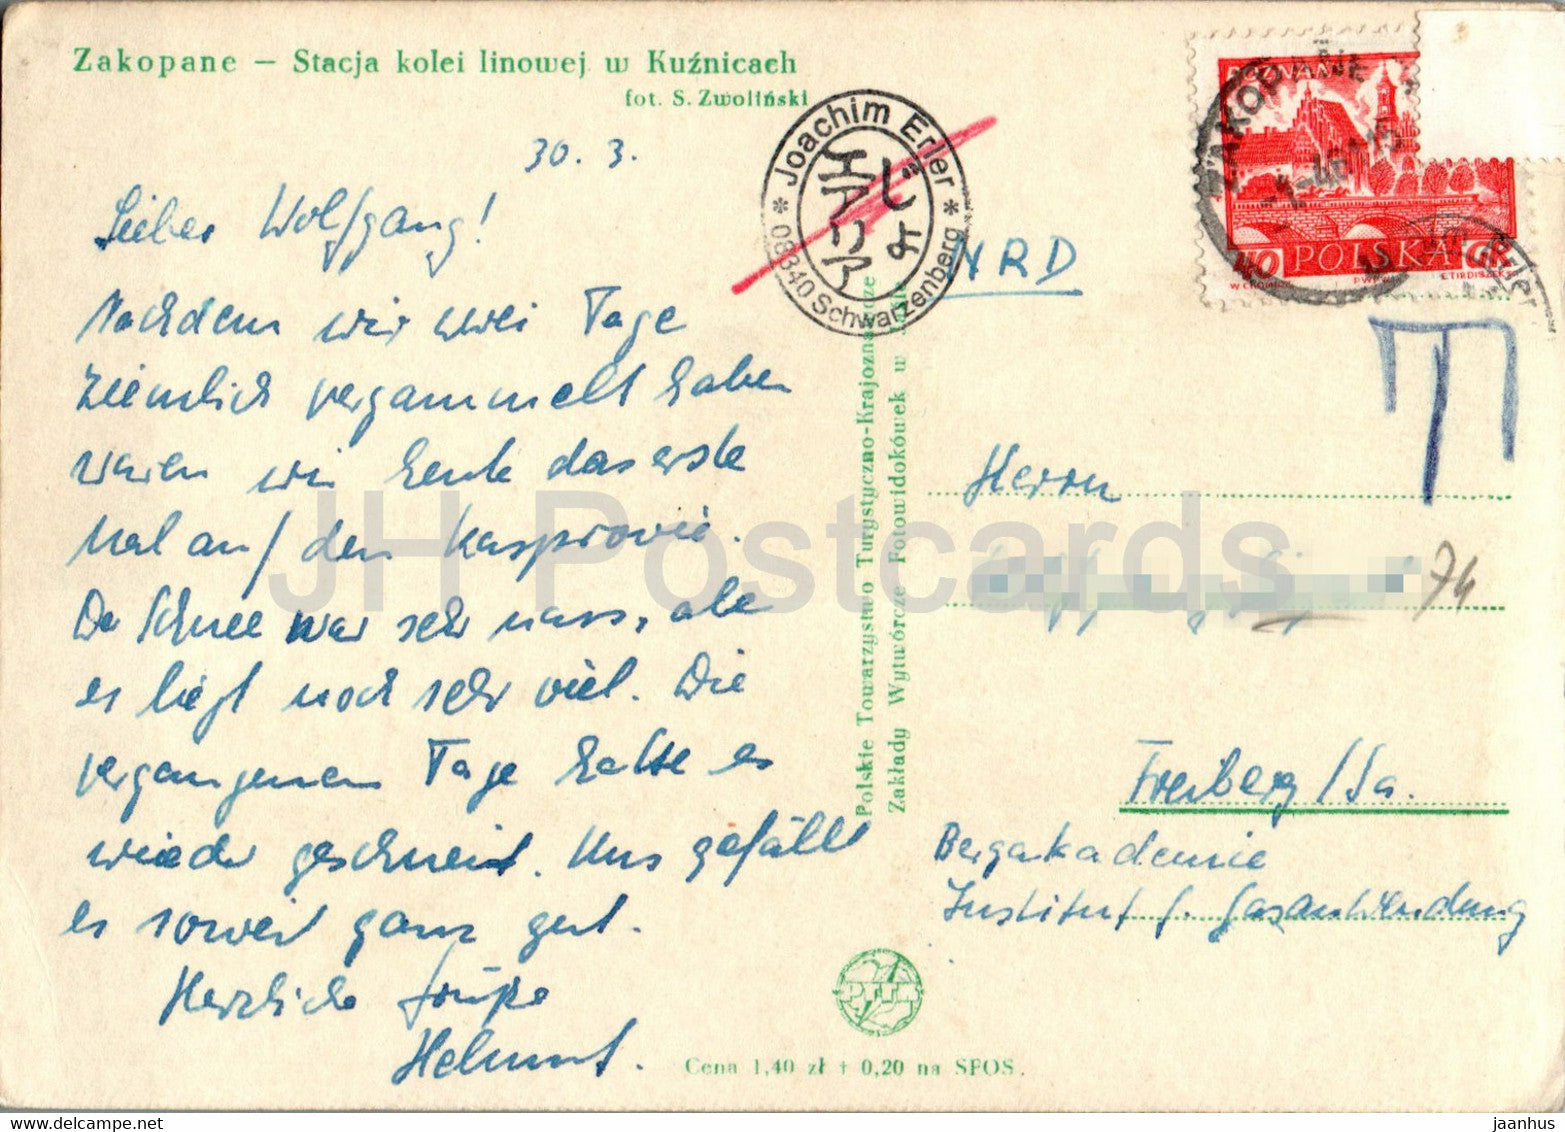 Zakopane — Stacja kolei linowej w Kuźnicach
fot. S. Zwoliński
30. 3.
Lieber Wolfgang!
Nachdem wir zwei Tage
ziemlich vergammelt haben
waren wir heute das erste
Mal auf den Kasprowie.
De Schnee war sehr nass, abe
es liegt noch sehr viel. Die
vergangenen Tage hatte es
wieder geschneit. Uns gefällt
es soweit ganz gut.
Herzliche Grüße
Helmut.
Cena 1,40 zł + 0,20 na SFOS.
Polskie Towarzystwo Turystyczno-Krajoznawcze
Zakłady Wytwórcze Fotowidokówek w
PTTK
* Joachim Erler *
08340 Schwarzenberg
NRD
POZNAŃ
40 POLSKA GR
ZAKOPANE
Erler
T
Herrn
74
Freiberg/Sa.
Bergakademie
Institut f. Gasanwendung
JH Postcards
www.delcampe.net
jaanhus